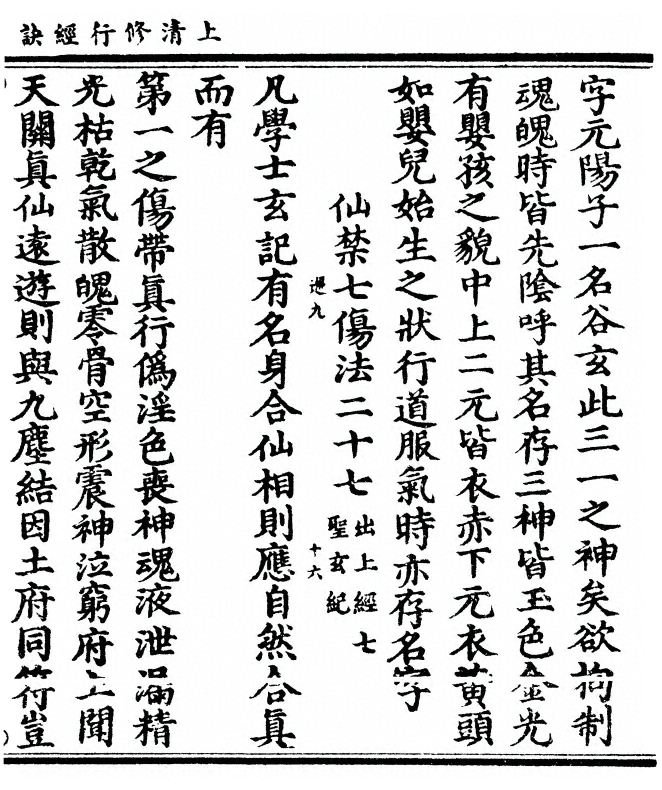 上清修行經訣
字元陽子一名谷玄此三一之神矣欲拘制
魂魄時皆先陰呼其名存三神皆玉色金光
有嬰孩之貌中上二元皆衣赤下元衣黄頭
如嬰兒始生之狀行道服氣時亦存名字
仙禁七傷法二十七
出上經七
聖玄紀
遜九
十六
凡學士玄記有名身合仙相則應自然合真
而有
第一之傷帶真行偽淫色喪神魂液泄漏精
光枯乾氣散魄零骨空形震神泣窮府上聞
天關真仙遠遊則與九塵結因土府同符豈